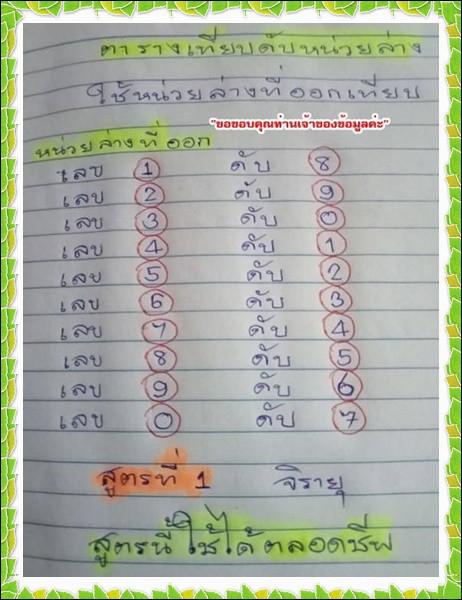 ตารางเทียบดับหน่วยล่าง
ใช้หน่วยล่างที่ออกเทียบ
"ขอขอบคุณท่านเจ้าของข้อมูลค่ะ"
หน่วยล่างที่ออก
เลข 1 ดับ 8
เลข 2 ดับ 9
เลข 3 ดับ 0
เลข 4 ดับ 1
เลข 5 ดับ 2
เลข 6 ดับ 3
เลข 7 ดับ 4
เลข 8 ดับ 5
เลข 9 ดับ 6
เลข 0 ดับ 7
สูตรที่ 1 จิรายุ
สูตรนี้ใช้ได้ตลอดชีพ